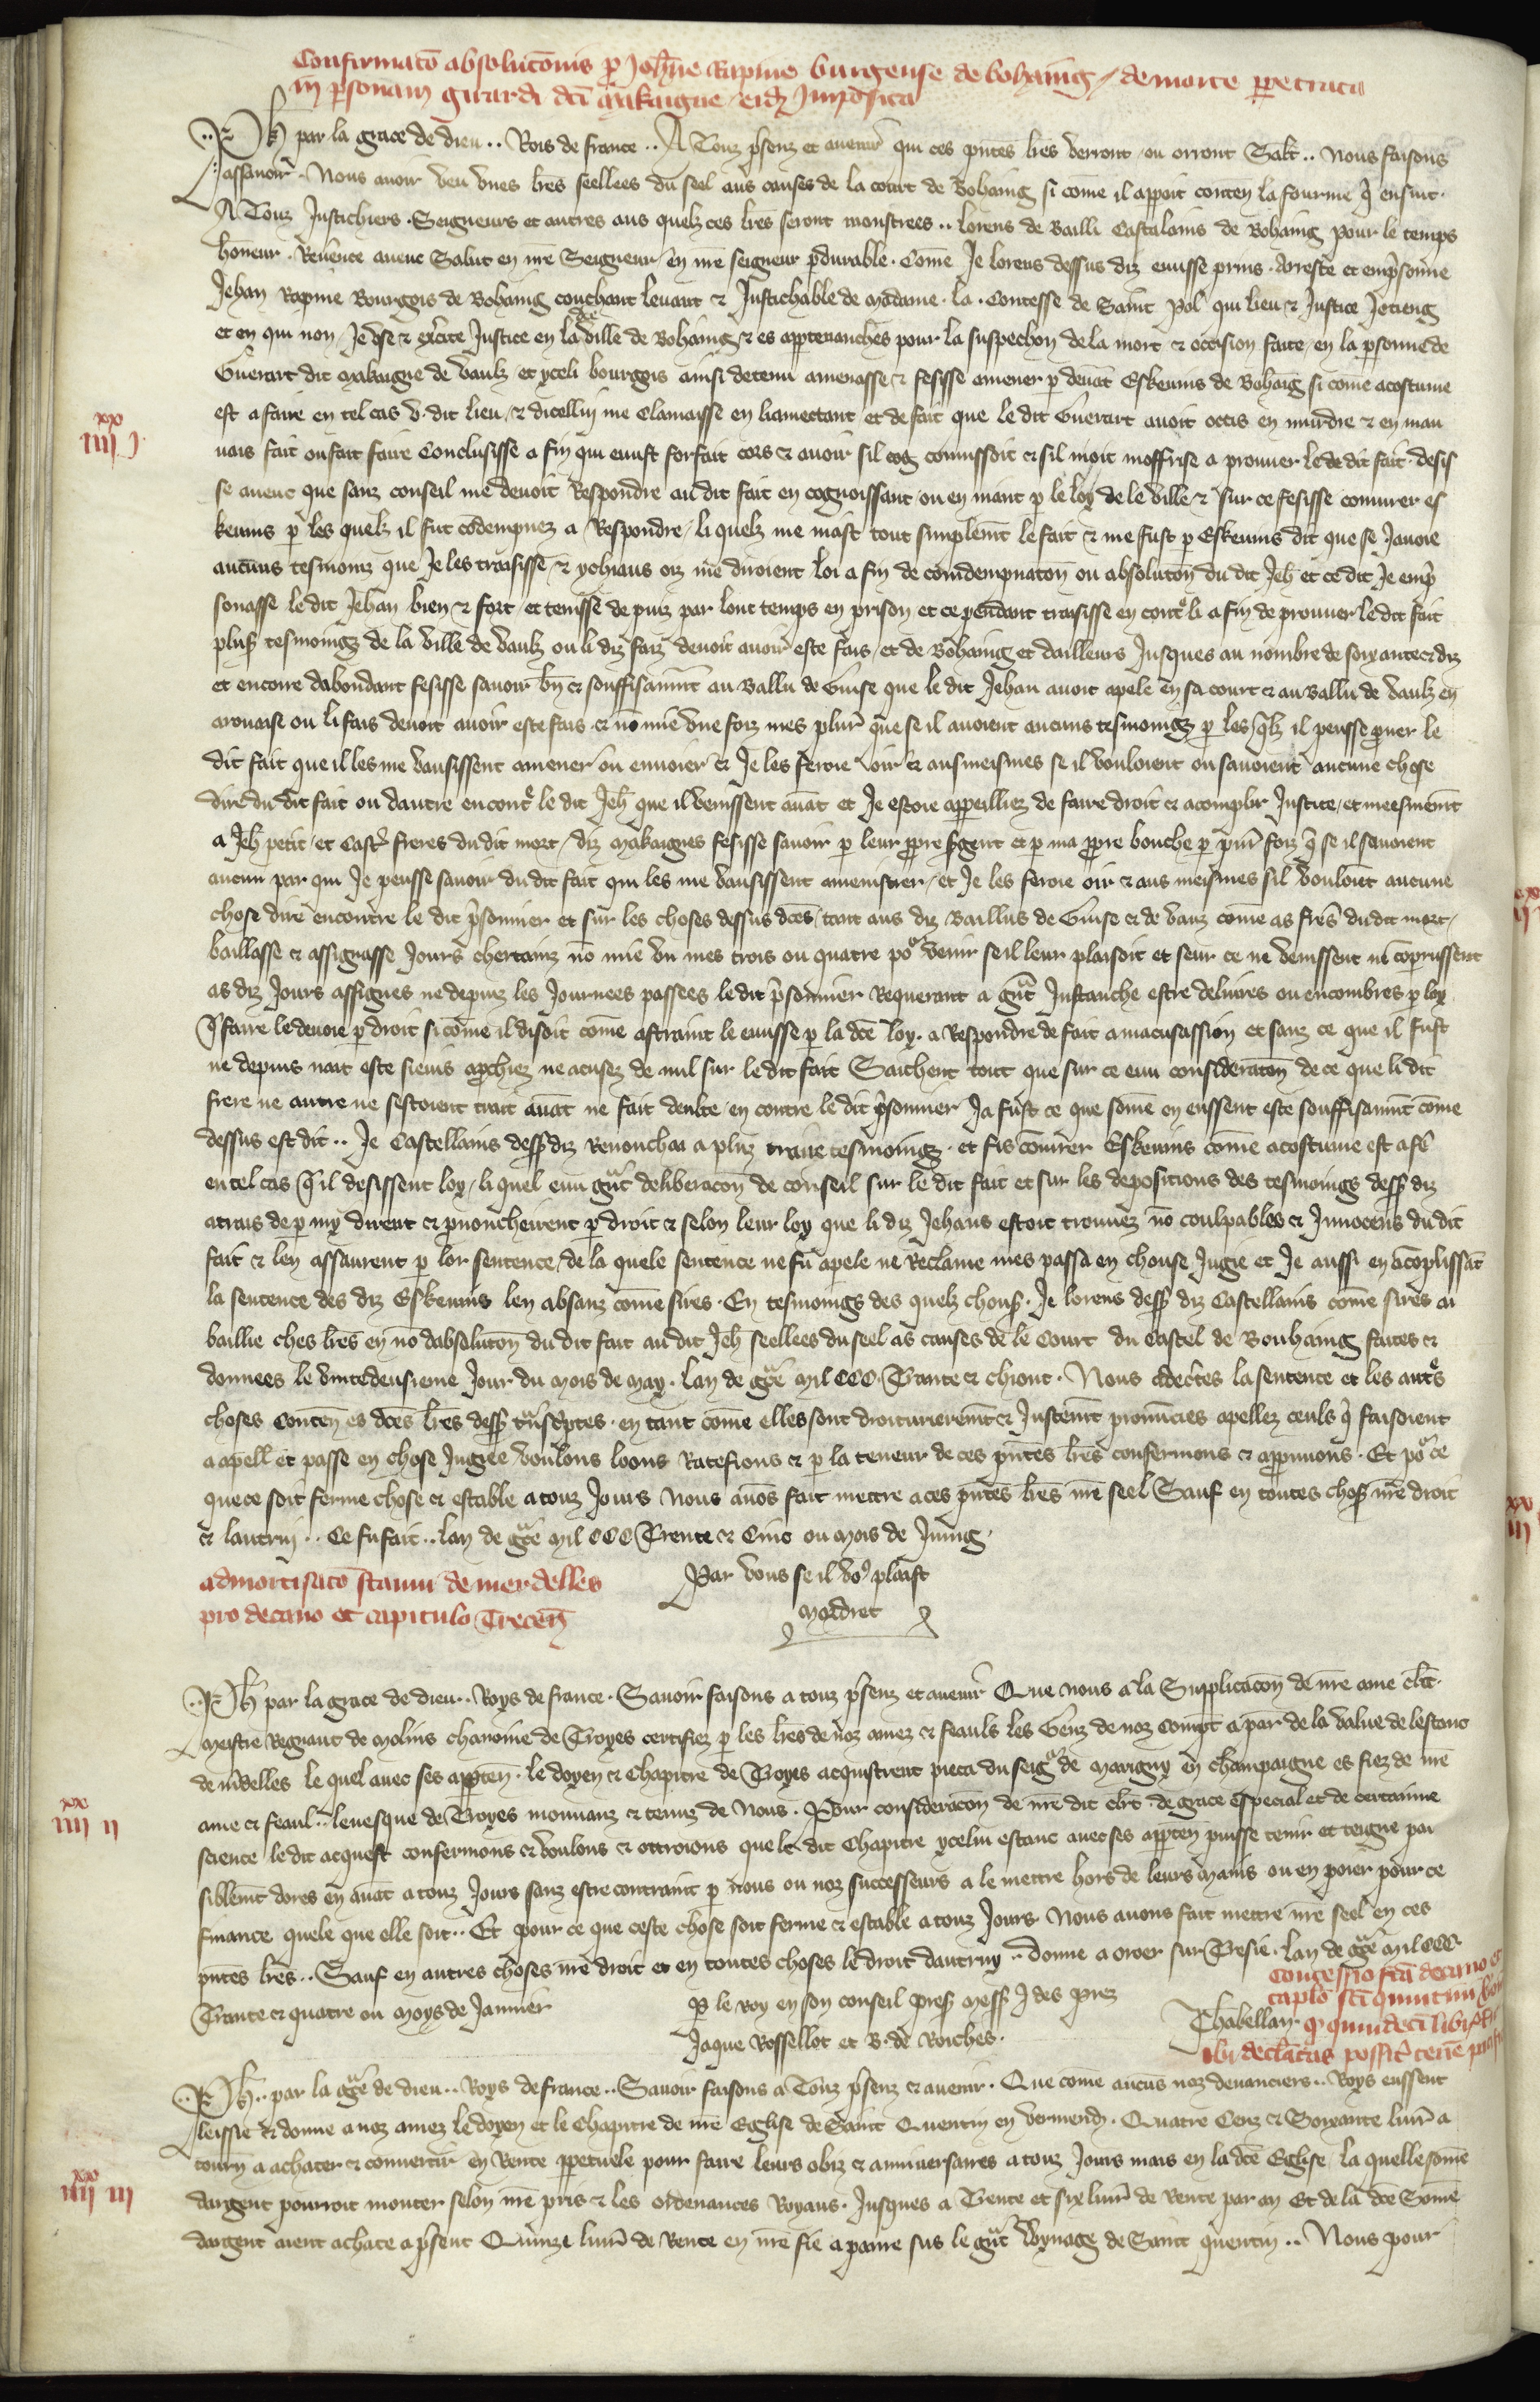 Confirmatō absolutōnis p Joh̄ne Rapine burgense de bohaing / de morte ppetrata
in p̄sonam girardi dc̄i makaigne / eidz Imposita
Ph par la grace de dieu .. Rois de france .. A Touz p̄senz et auenir qui ces p̄ntes lr̄es verront / ou orront Salt .. Nous faisons
assauoir . Nous auoir veu vnes lr̄es seellees du seel aus causes de la court de bohaing si come il apoit conten̄ la fourme q̄ ensuit .
A Touz Justichiers . Seigneurs et autres aus quelz ces lr̄es seront monstrees .. Lorens de Bailli Castelains de Bohaing pour le temps
honeur . Reuerēce auenc Salut en nr̄e Seigneur / en nr̄e seigneur pdurable . Comē Je lorens dessus diz euisse prins . Arreste et emp̄sonne
Jehan Rapine Bourgois de Bohaing couchant leuant & Justichable de madame . la . Contesse de Saint Pol qui lieu & Justice Je tieng
et en qui non / Je vse & exc̄ite Justice en la dc̄e ville de Bohaing & es apptenanches pour la suspechon de la mort & occision faite / en la p̄sonne de
Guerart dit makaigne de vaulz et yceli bourgois ainsi detenu amenasse & fesisse amener p deuāt Eskeuins de Bohaīg si come acostume
est a faire en tel cas v . dit lieu / & dicelluy me clamasse en liamectant et de fait que le dit Guerart auoit occis en murdre & en mau
uais fait ou fait faire Conclusisse a fin qui euust forfait cors & auoir sil cog connissoit & sil nioit moffrise a prouuer le dit fait . desis
se auenc que sanz conseil me deuoit Respondre au dit fait en cognoissant / ou en niant p le loy de le ville & sur ce fesisse coniurer es
keuins p les quelz il fut condempnez a Respondre / li quelz me niast tout simplem̄t le fait & me fust p Eskeuins dit que se Jauoie
aucuns tesmoinz que Je les traisisse & ychiaus oiz me diroient loi a fin de comdempnatoñ ou absolutoñ du dit Jeh̄ et ce dit Je emp̄
sonasse le dit Jehan bien & fort / et tenisse de puiz par lonc temps en prison et ce pendant traisisse en cont̄ li a fin de prouuer le dit fait
plus̄ tesmoingz de la ville de vaulz ou li diz faiz deuoit auoir este fais / et de Bohaing et dailleurs Jusques au nombre de soixante & diz
et encore dabondant fesisse sauoir bn̄ & souffisaument au Ballu de Guise que le dit Jehan auoit apele en sa court & au Ballu de vaulz en
arouaise ou li fais deuoit auoir este fais & nō mie vne foiz mes plur̄ que se il auoient aucuns tesmoingz p les q̄lz il peusse prouer le
dit fait que il les me vausissent amener ou enuoier & Je les feroie oir & aus meismes se il vouloient ou sauoient aucune chose
dire du dit fait ou dautre encont̄ le dit Jeh̄ que il venissent auāt et Je estoie appeilliez de faire droit & acomplir Justice / et meesmem̄t
a Jeh̄ petit / et Cast̄ freres du dit mort / diz makaignes fesisse sauoir p leur propre sergent et p ma propre bouche p plur̄ foiz q̄ se il sauoient
aucun par qui Je peusse sauoir du dit fait qui les me vausissent amenistrer / et Je les feroie oir & aus meismes sil vouloiēt aucune
chose dire encontre le dit p̄sonnier et sur les choses dessus dc̄es / tant aus diz Baillus de Guise & de vaus come as fr̄es du dit mort /
baillasse & assignasse Jours chertainz nō mie vn mes trois ou quatre po̕ venir se il leur plaisoit et seur ce ne venissent ne coprussent
as diz Jours assignes ne depuiz les Journees passees le dit p̄sonnier Requerant a gr̄nt Justanche estre deliures ou encombres p loy
q̄ faire le deuoie p droit si come il disoit come astraint le euisse p la dc̄e loy . a Respondre de fait a macusassion et sanz ce que il fust
ne depuis nait este sieuis aprochiez ne acusez de nul sur le dit fait Saichent tout que sur ce euu consideratoñ de ce que li dit
frere ne autre ne sestoient trait auāt ne fait denlte / en contre le dit p̄sonnier Ja fust ce que somē en eussent este souffisaum̄t come
dessus est dit .. Je Castellains dess̄ diz Renonchai a pluz traire tesmoingz . et fis coniurer Eskeuins come acostume est a fē
en tel cas q̄ il desissent loy / li quel euu gr̄nt deliberacoñ de conseil sur le dit fait et sur les depositions des tesmoings dess̄ diz
atrais de p my dirent & prononcheirent p droit & selon leur loy que li diz Jehans estoit trouuez nō coulpables & Innocens du dit
fait & len assaurent p lor sentence / de la quele sentence ne fu apele ne Reclame mes passa en chouse Jugie et Je aussi en acoplissāt
la sentence des diz Eskeuins len absauz come sires . En tesmoings des quelz chous̄ . Je lorens dess̄ diz Castellains come sires ai
baillie ches lr̄es en nō dabsolutoñ du dit fait au dit Jeh̄ seellees du seel as causes de le Court du Castel de Bouhaing faites &
donnees le vintedeusieme Jour du mois de may . lan de gr̄ce mil CCC . Trante & chionc . Nous adec̄tes la sentence et les aut̄s
choses conten̄ es dc̄es lr̄es dess̄ t̄nsc̄ptes . en tant come elles sont droiturierem̄t & Justem̄t pronūcies apellez ceuls q̄ faisoient
a apell̄ et passe en chose Jugiee voulons loons Ratefions & p la teneur de ces p̄ntes lr̄es confermons & approuuons . Et po̕ ce
que ce soit ferme chose & estable a touz Jours Nous auōs fait mettre a ces p̄ntes lr̄es nr̄e seel Sauf en toutes chos̄ nr̄e droit
& lautruy .. Ce fu fait .. lan de gr̄ce mil CCC Trente & Cinc ou mois de Juing .
Par vous se il vo9 plaist
mordret
admortisatō stanni de merdelles
pro decano et capitulo Trecen̄
iiii xx j .
Ph par la grace de dieu .. Roys de france . Sauoir faisons a touz p̄senz et auenir Que nous a la Supplicacoñ de nr̄e ame cler̄c .
meistre Regnaut de molins chanoine de Troyes certifiez p les lr̄es de noz amez & feauls les Genz de noz Compt̄ a par̄ de la value de lestanc
de m̄delles le quel auec ses appten̄ . le doyen & Chapitre de Troyes acquistrent pieca du seiḡ de Marigny en champaigne es fiez de nr̄e
ame & feaul .. leuesque de Troyes mouuanz & tenuz de Nous . Pour consideracoñ de nr̄e dit cler̄c . de grace especial et de certainne
science le dit acquest confermons & voulons & ottroions que le dit Chapitre ycelui estanc auec ses appten̄ puisse tenir et teigne pai
siblem̄t dores en auāt a touz Jours sanz estre contraint p nous ou noz successeurs a le mettre hors de leurs mains ou en poier pour ce
finance quele que elle soit .. Et pour ce que ceste chose soit ferme & estable a touz Jours Nous auons fait mettre nr̄e seel en ces
p̄ntes lr̄es .. Sauf en autres choses nr̄e droit et en toutes choses le droit dautruy .. donne a orcer sur Tresie . lan de gr̄ce mil CCC
Trante & quatre ou moys de Jannier
P le roy en son conseil pres̄ mess̄ J des prez
Jaque Rossellot et B . de Roiches .
Chabellan .
iiii xx ij
Concessio fc̄a decano et
caplo sc̄i quintini
q quindeci libr̄
ibi declaratas possit̄ tenē
Ph .. par la gr̄ce de dieu .. Roys de france .. Sauoir faisons a Touz p̄senz & auenir . Que come aucus noz deuanciers .. Roys eussent
leissie & donne a noz amez le doyen et le Chapitre de nr̄e Eglise de Saint Quentin en vermend̄ . Quatre Cenz & Soixante liur̄ a
tourn̄ a achater & conuertir en Rente ppetuele pour faire leurs obiz & anniuersaires a touz Jours mais en la dc̄e Eglise / la quelle somē
dargent pourroit monter selon nr̄e pris & les ordenances Royaus . Jusques a Trente et six liur̄ de Rente par an Et de la dc̄e Somē
dargent aient achate a p̄sent Quinze liur̄ de Rente en nr̄e fie a panre sus le gr̄nt Wynage de Saint quentin .. Nous pour
iiii xx iij